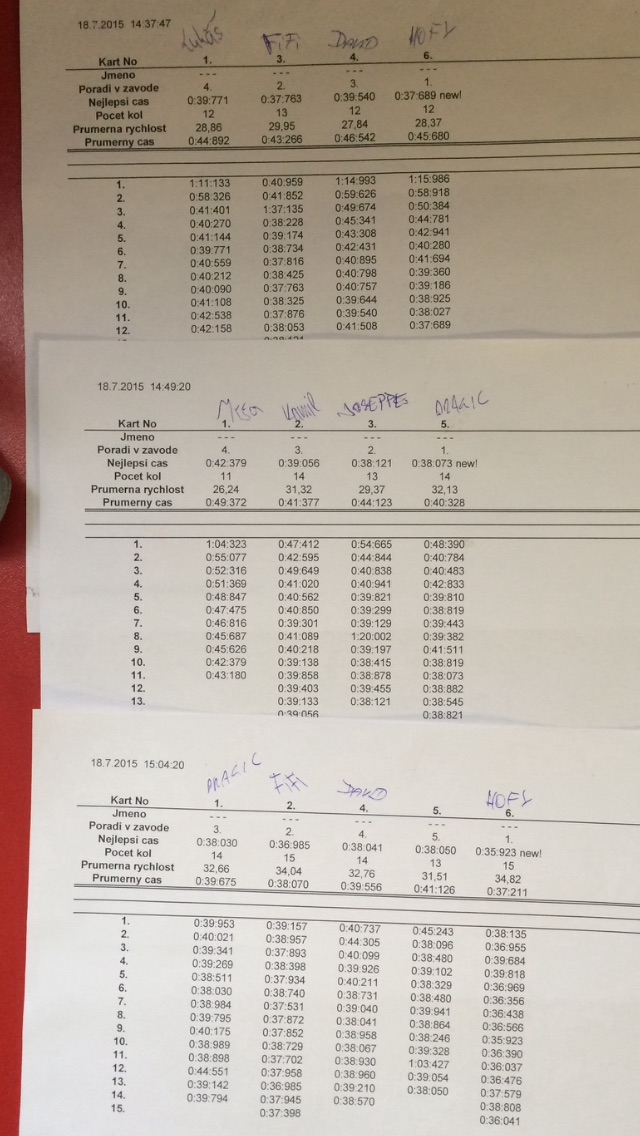 18.7.2015 14:37:47
Lukáš FiFi DAVID HOFY
Kart No 1. 3. 4. 6.
Jmeno --- --- --- ---
Poradi v zavode 4. 2. 3. 1.
Nejlepsi cas 0:39:771 0:37:763 0:39:540 0:37:689 new!
Pocet kol 12 13 12 12
Prumerna rychlost 28,86 29,95 27,84 28,37
Prumerny cas 0:44:892 0:43:266 0:46:542 0:45:680
1. 1:11:133 0:40:959 1:14:993 1:15:986
2. 0:58:326 0:41:852 0:59:626 0:58:918
3. 0:41:401 1:37:135 0:49:674 0:50:384
4. 0:40:270 0:38:228 0:45:341 0:44:781
5. 0:41:144 0:39:174 0:43:308 0:42:941
6. 0:39:771 0:38:734 0:42:431 0:40:280
7. 0:40:559 0:37:816 0:40:895 0:41:694
8. 0:40:212 0:38:425 0:40:798 0:39:360
9. 0:40:090 0:37:763 0:40:757 0:39:186
10. 0:41:108 0:38:325 0:39:644 0:38:925
11. 0:42:538 0:37:876 0:39:540 0:38:027
12. 0:42:158 0:38:053 0:41:508 0:37:689
18.7.2015 14:49:20
Kamil JOSEPPES DRAGIC
Kart No 1. 2. 3. 5.
Jmeno --- --- --- ---
Poradi v zavode 4. 3. 2. 1.
Nejlepsi cas 0:42:379 0:39:056 0:38:121 0:38:073 new!
Pocet kol 11 14 13 14
Prumerna rychlost 26,24 31,32 29,37 32,13
Prumerny cas 0:49:372 0:41:377 0:44:123 0:40:328
1. 1:04:323 0:47:412 0:54:665 0:48:390
2. 0:55:077 0:42:595 0:44:844 0:40:784
3. 0:52:316 0:49:649 0:40:838 0:40:483
4. 0:51:369 0:41:020 0:40:941 0:42:833
5. 0:48:847 0:40:562 0:39:821 0:39:810
6. 0:47:475 0:40:850 0:39:299 0:38:819
7. 0:46:816 0:39:301 0:39:129 0:39:443
8. 0:45:687 0:41:089 1:20:002 0:39:382
9. 0:45:626 0:40:218 0:39:197 0:41:511
10. 0:42:379 0:39:138 0:38:415 0:38:819
11. 0:43:180 0:39:858 0:38:878 0:38:073
12. 0:39:403 0:39:455 0:38:882
13. 0:39:133 0:38:121 0:38:545
0:39:056 0:38:821
18.7.2015 15:04:20
DRAGIC FiFi DAVID HOFY
Kart No 1. 2. 4. 5. 6.
Jmeno --- --- --- --- ---
Poradi v zavode 3. 2. 4. 5. 1.
Nejlepsi cas 0:38:030 0:36:985 0:38:041 0:38:050 0:35:923 new!
Pocet kol 14 15 14 13 15
Prumerna rychlost 32,66 34,04 32,76 31,51 34,82
Prumerny cas 0:39:675 0:38:070 0:39:556 0:41:126 0:37:211
1. 0:39:953 0:39:157 0:40:737 0:45:243 0:38:135
2. 0:40:021 0:38:957 0:44:305 0:38:096 0:36:955
3. 0:39:341 0:37:893 0:40:099 0:38:480 0:39:684
4. 0:39:269 0:38:398 0:39:926 0:39:102 0:39:818
5. 0:38:511 0:37:934 0:40:211 0:38:329 0:36:969
6. 0:38:030 0:38:740 0:38:731 0:38:480 0:36:356
7. 0:38:984 0:37:531 0:39:040 0:39:941 0:36:438
8. 0:39:795 0:37:872 0:38:041 0:38:864 0:36:566
9. 0:40:175 0:37:852 0:38:958 0:38:246 0:35:923
10. 0:38:989 0:38:729 0:38:067 0:39:328 0:36:390
11. 0:38:898 0:37:702 0:38:930 1:03:427 0:36:037
12. 0:44:551 0:37:958 0:38:960 0:39:054 0:36:476
13. 0:39:142 0:36:985 0:39:210 0:38:050 0:37:579
14. 0:39:794 0:37:945 0:38:570 0:38:808
15. 0:37:398 0:36:041